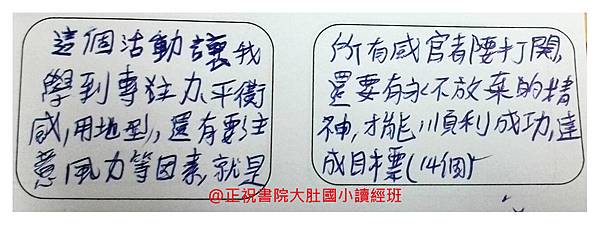 這個活動讓我
學到專注力、平衡
感,用地型,還有要注
意風力等因素,就是
所有感官者陵打開,
還要有永不放棄的精
神,才能順利成功,達
成目標(14個)
@正祝書院大肚國小讀經班